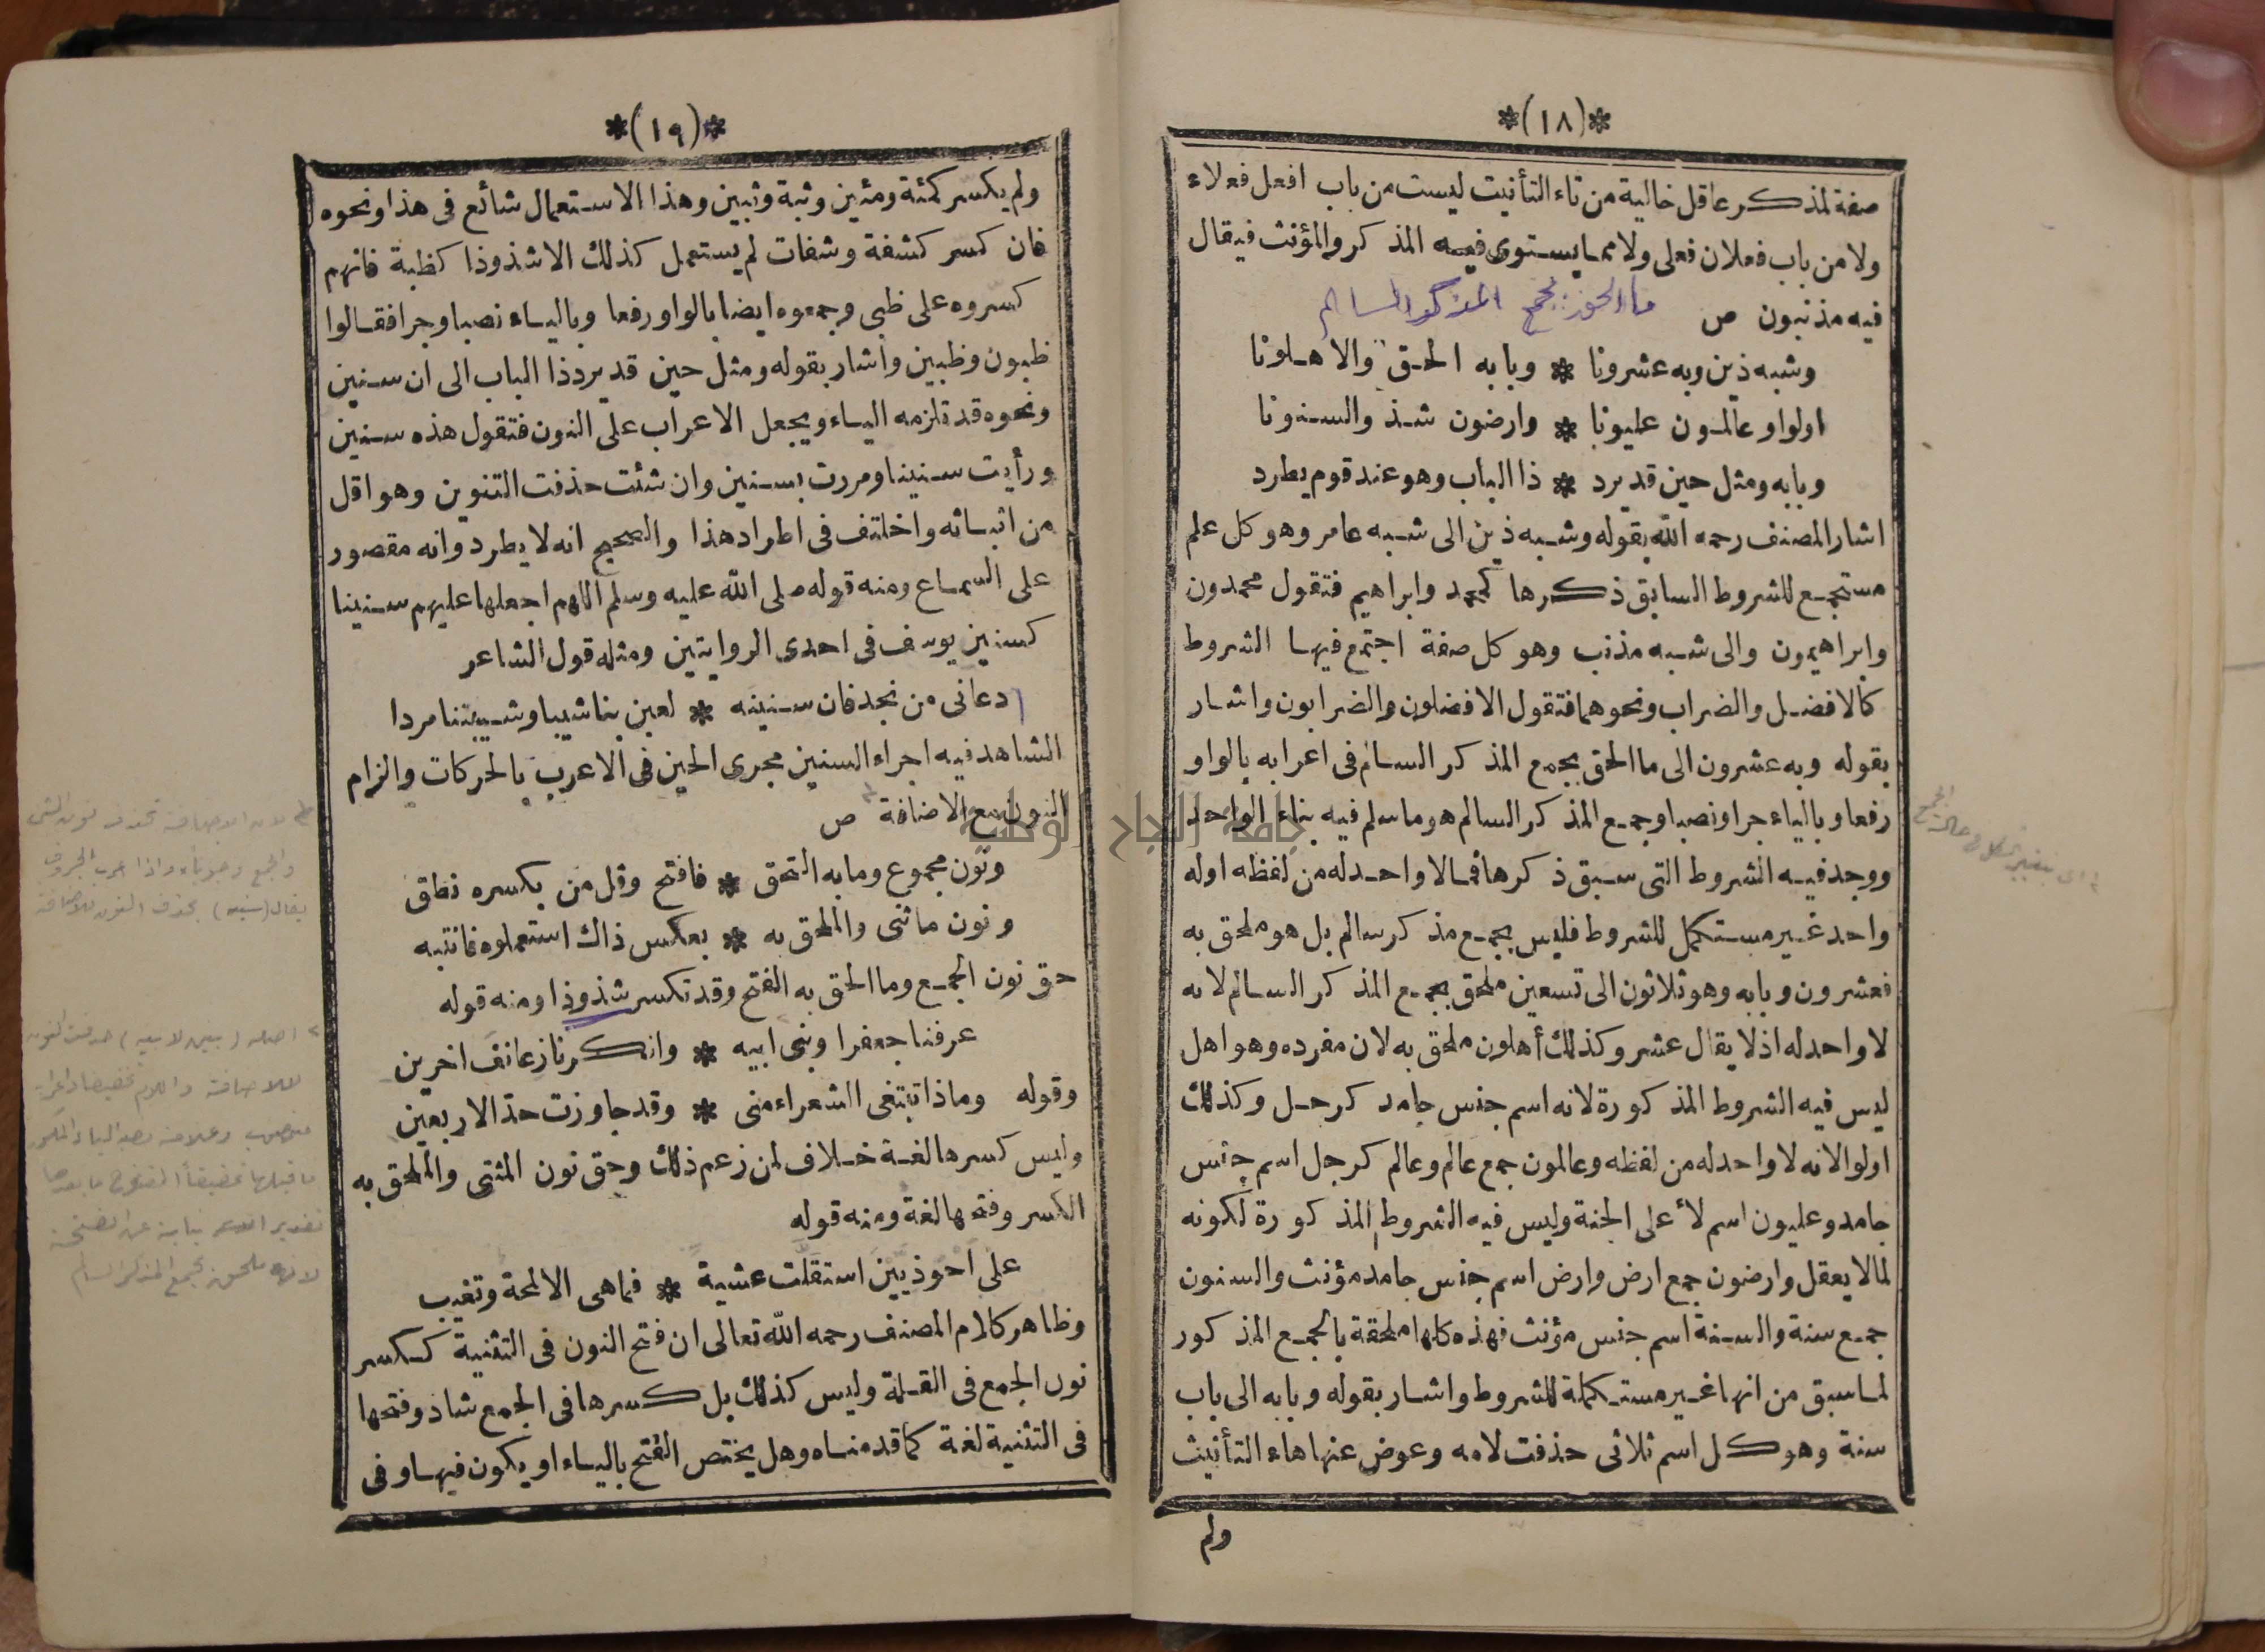 *(١٨)*
صفة لمذكر عاقل خالية من تاء التأنيث ليست من باب افعل فعلاء
ولا من باب فعلان فعلى ولا مما يستوى فيه المذكر والمؤنث فيقال
فيه مذنبون ص ما الحق بجمع المذكر السالم
وشبه ذين وبه عشرونا * وبابه الحق والاهلونا
اولوا وعالمون عليونا * وارضون شذ والسنونا
وبابه ومثل حين قد يرد * ذا الباب وهو عند قوم يطرد
اشار المصنف رحمه الله بقوله وشبه ذين الى شبه عامر وهو كل علم
مستجمع للشروط السابق ذكرها كمحمد وابراهيم فتقول محمدون
وابراهيمون والى شبه مذنب وهو كل صفة اجتمع فيها الشروط
كالافضل والضراب ونحوهما فتقول الافضلون والضرابون واشار
بقوله وبه عشرون الى ما الحق بجمع المذكر السالم فى اعرابه بالواو
رفعا وبالياء جرا ونصبا وجمع المذكر السالم هو ما سلم فيه بناء الواحد
ووجد فيه الشروط التى سبق ذكرها فما لا واحد له من لفظه اوله
واحد غير مستكمل للشروط فليس بجمع مذكر سالم بل هو ملحق به
فعشرون وبابه وهو ثلاثون الى تسعين ملحق بجمع المذكر السالم لانه
لا واحد له اذ لا يقال عشر وكذلك أهلون ملحق به لان مفرده وهو اهل
ليس فيه الشروط المذكورة لانه اسم جنس جامد كرجل وكذلك
اولوا لانه لا واحد له من لفظه وعالمون جمع عالم وعالم كرجل اسم جنس
جامد وعليون اسم لأعلى الجنة وليس فيه الشروط المذكورة لكونه
لما لا يعقل وارضون جمع ارض وارض اسم جنس جامد مؤنث والسنون
جمع سنة والسنة اسم جنس مؤنث فهذه كلها ملحقة بالجمع المذكور
لما سبق من انها غير مستكملة للشروط واشار بقوله وبابه الى باب
سنة وهو كل اسم ثلاثى حذفت لامه وعوض عنها هاء التأنيث
ولم
*(١٩)*
ولم يكسر كمئة ومئين وثبة وثبين وهذا الاستعمال شائع فى هذا ونحوه
فان كسر كشفة وشفات لم يستعمل كذلك الا شذوذا كظبة فانهم
كسروه على ظبى وجمعوه ايضا بالواو رفعا وبالياء نصبا وجرا فقالوا
ظبون وظبين واشار بقوله ومثل حين قد يرد ذا الباب الى ان سنين
ونحوه قد تلزمه الياء ويجعل الاعراب على النون فتقول هذه سنين
ورأيت سنينا ومررت بسنين وان شئت حذفت التنوين وهو اقل
من اثباته واختلف فى اطراد هذا والصحيح انه لا يطرد وانه مقصور
على السماع ومنه قوله صلى الله عليه وسلم اللهم اجعلها عليهم سنينا
كسنين يوسف فى احدى الروايتين ومثله قول الشاعر
دعانى من نجد فان سنينه * لعبن بنا شيبا وشيبتنا مردا
الشاهد فيه اجراء السنين مجرى الحين فى الاعرب بالحركات والزام
النون مع الاضافة ص
ونون مجموع وما به التحق * فافتح وقل من بكسره نطق
ونون ما ثنى والملحق به * بعكس ذاك استعملوه فانتبه
حق نون الجمع وما الحق به الفتح وقد تكسر شذوذا ومنه قوله
عرفنا جعفرا وبنى ابيه * وانكرنا زعانف اخرين
وقوله وماذا تبتغى الشعراء منى * وقد جاوزت حد الاربعين
وليس كسرها لغة خلاف لمن زعم ذلك وحق نون المثنى والملحق به
الكسر وفتحها لغة ومنه قوله
على احوذيين استقلت عشية * فما هى الا لمحة وتغيب
وظاهر كلام المصنف رحمه الله تعالى ان فتح النون فى التثنية ككسر
نون الجمع فى القلة وليس كذلك بل كسرها فى الجمع شاذ وفتحها
فى التثنية لغة كما قدمناه وهل يختص الفتح بالياء او يكون فيها وفى
لان الاضافة تحذف نون المثنى
والجمع وجوبا واذا
يقال (سنيه) بحذف النون للاضافة
اصله (بنين لابيه) حذفت النون
للاضافة واللام تخفيفا
لانه ملحق بجمع المذكر السالم
جامعة النجاح الوطنية